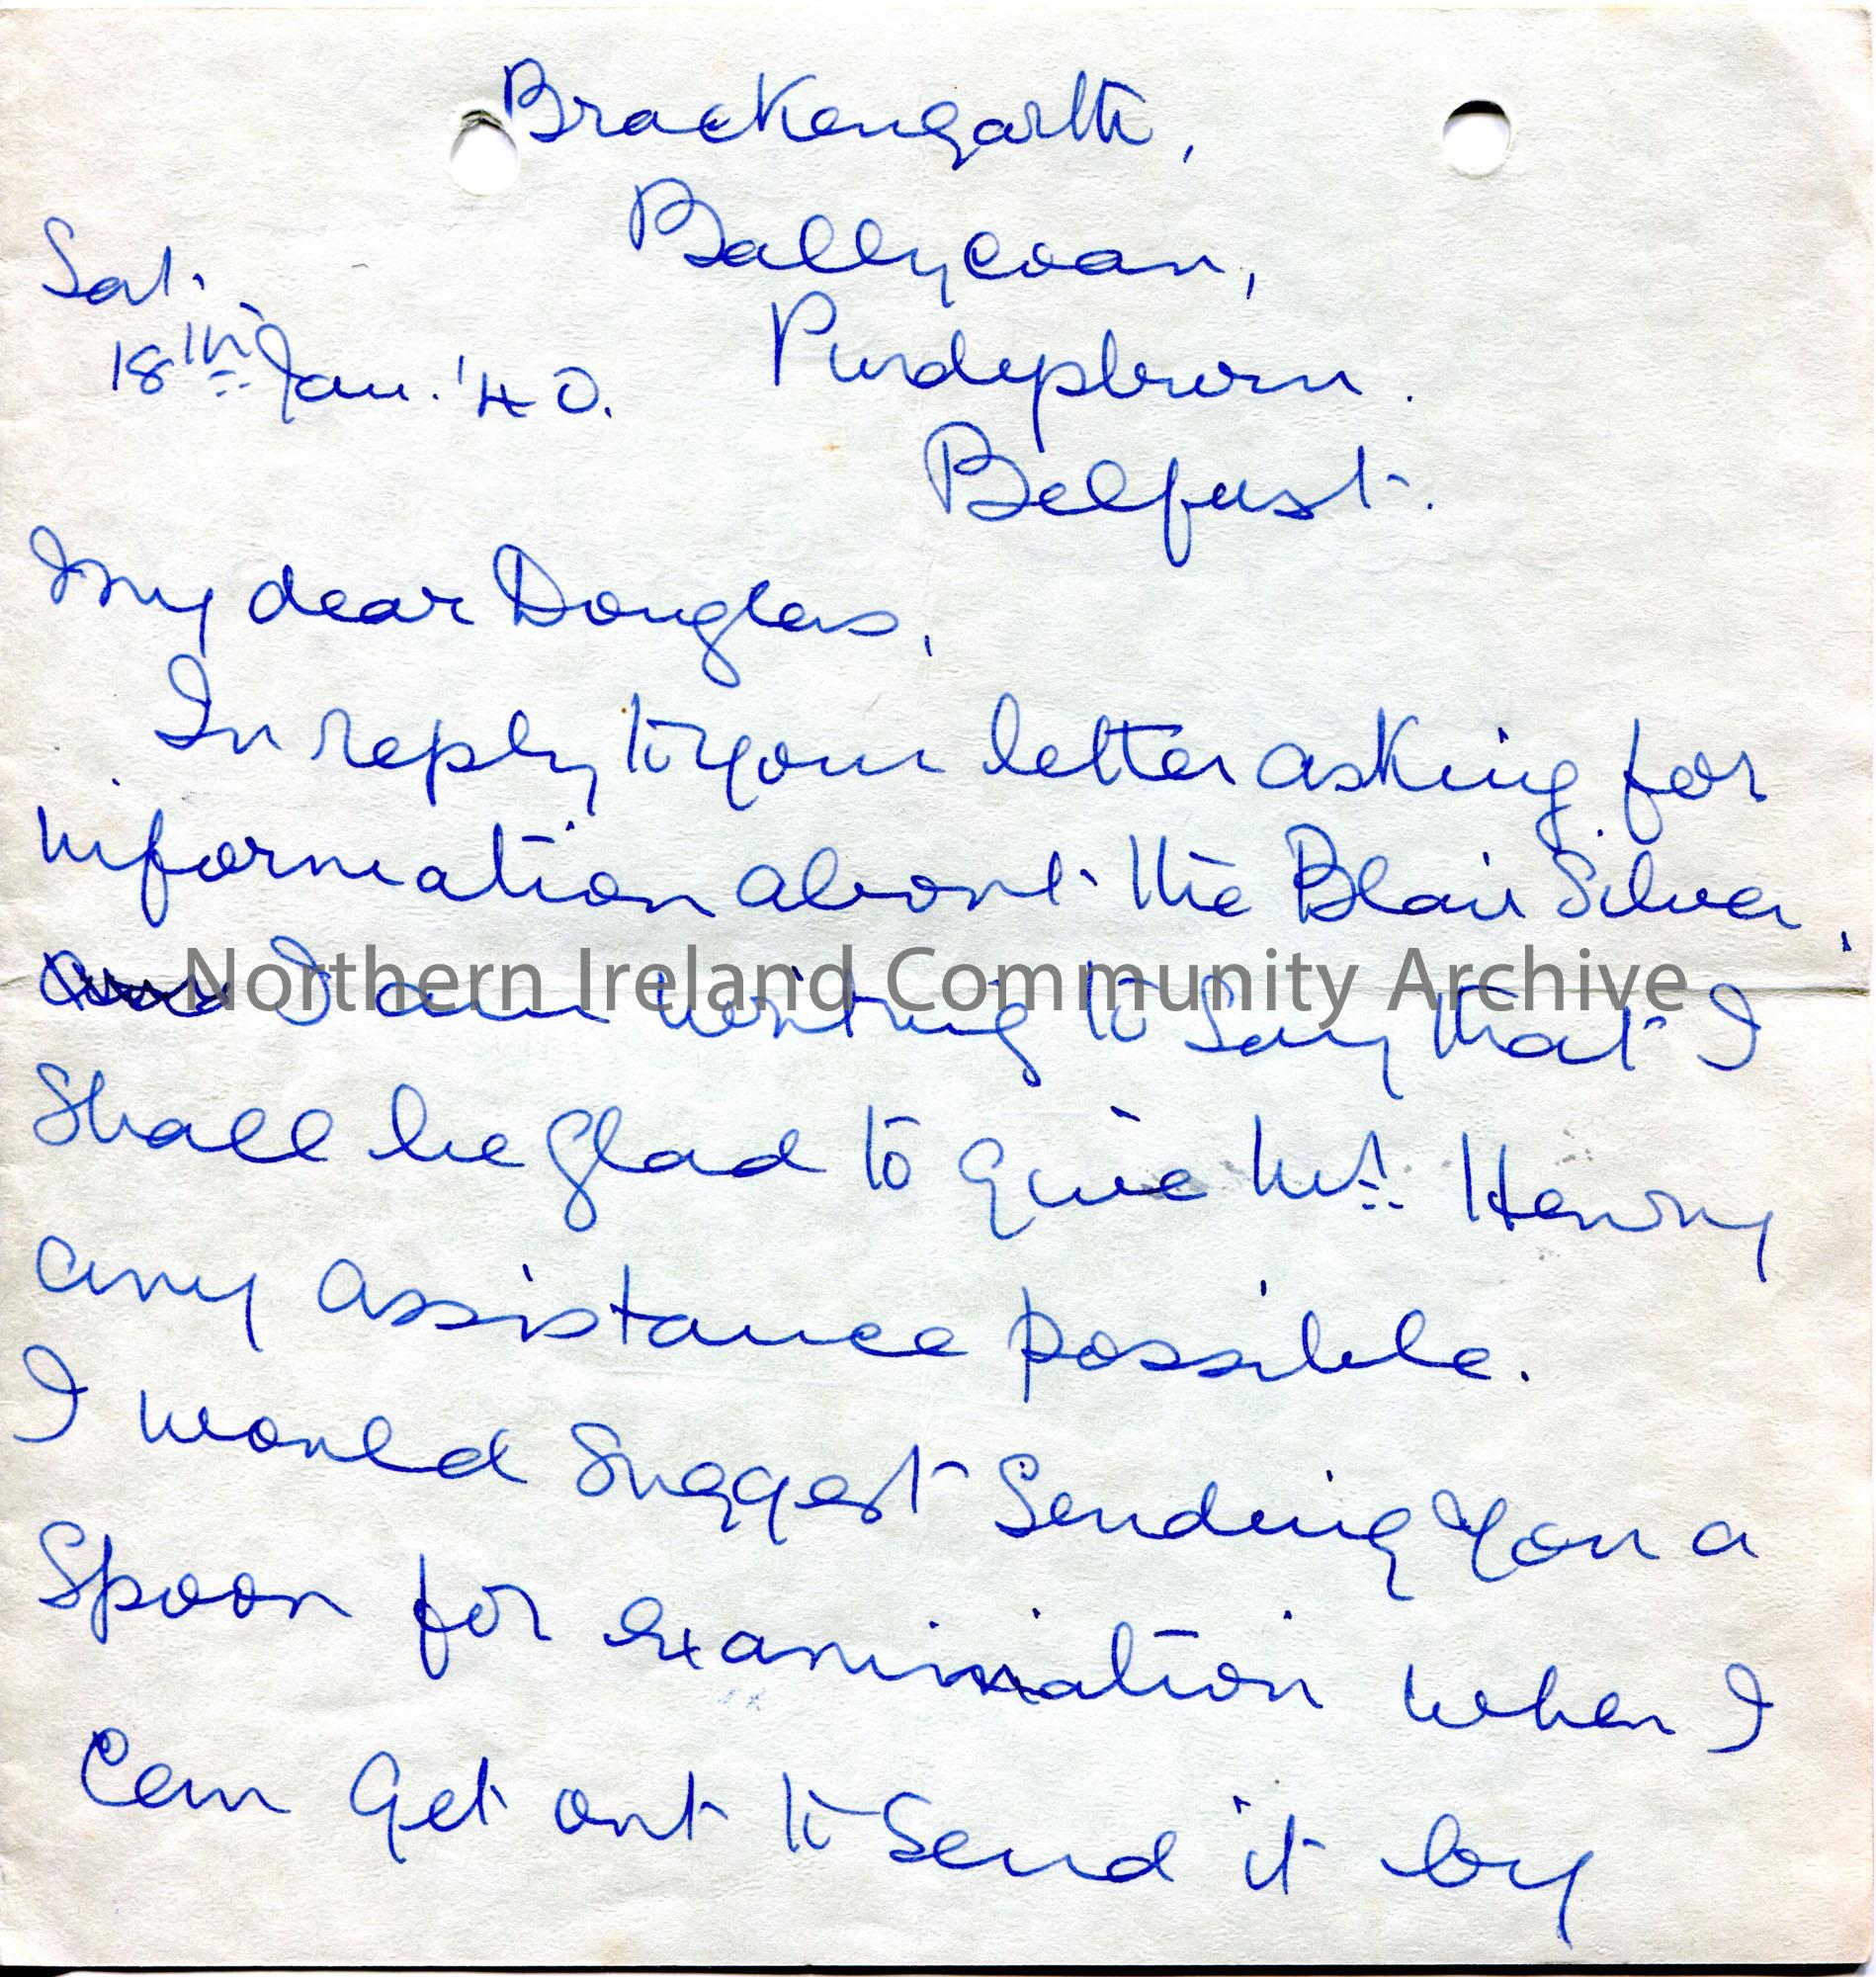 Brackengarth,
Ballycoan,
Sat.
18th Jan. '40.
Purdysburn.
Belfast.
My dear Douglas,
In reply to your letter asking for
information about the Blair Silver,
I am writing to say that I
Shall be glad to give Mr. Henry
any assistance possible.
I would Suggest Sending You a
Spoon for examination when I
Can Get out to Send it by
Northern Ireland Community Archive